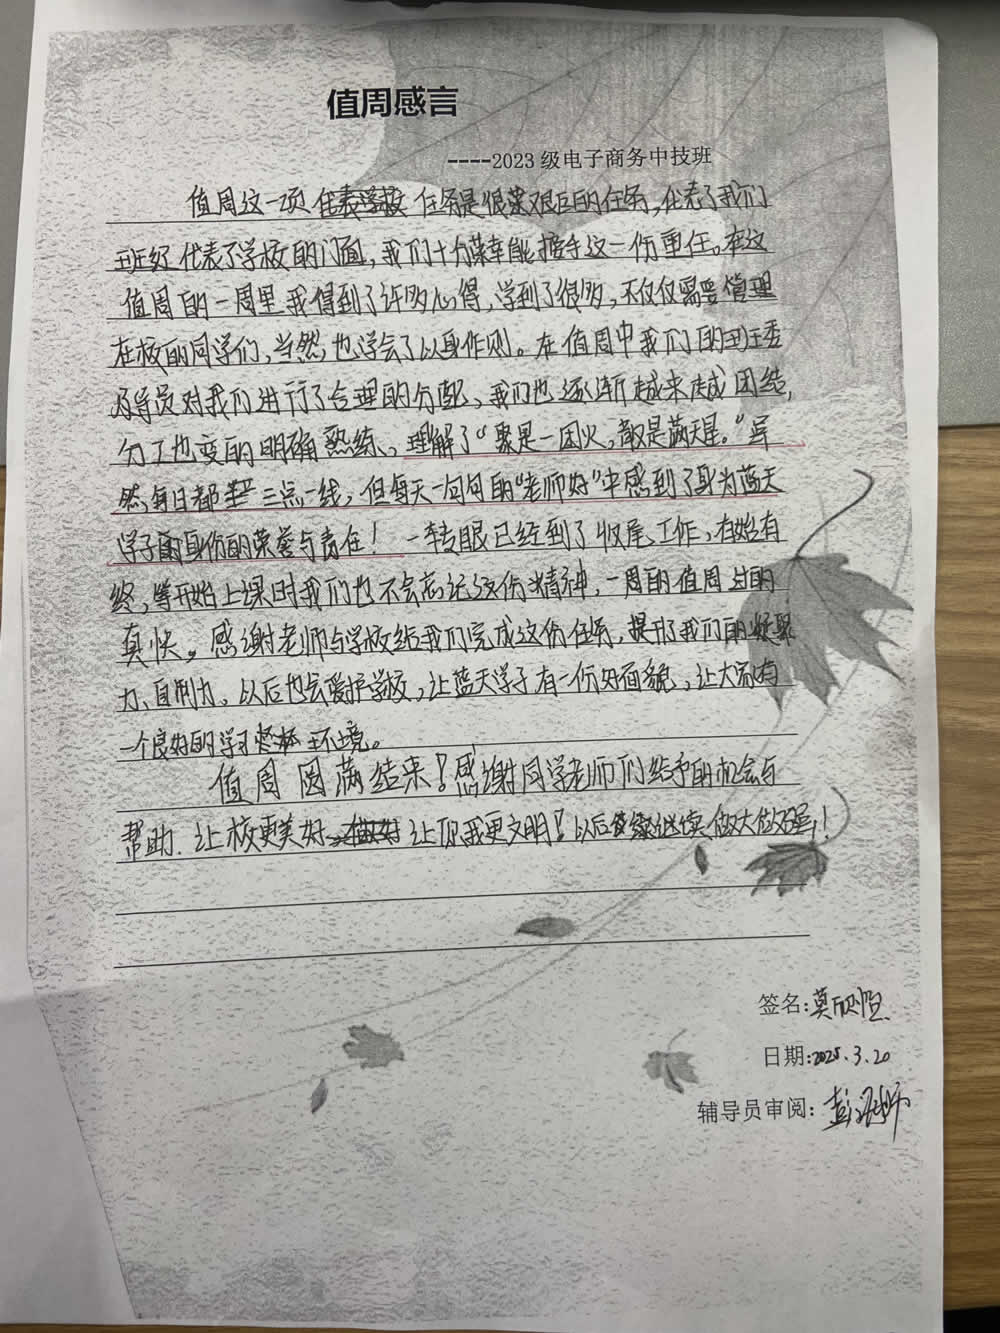 值周感言
----2023 级电子商务中技班
值周这一项任务是很艰巨的任务,代表了我们
班级代表了学校的门面,我们十分荣幸能接手这一份重任。在这
值周的一周里我得到了许多心得,学到了很多,不仅仅需要管理
在校的同学们,当然,也学会了以身作则。在值周中我们的班主委
及导员对我们进行了合理的分配、我们也逐渐越来越团结,
分工也变的明确熟练、理解了“聚是一团火,散是满天星。”虽
然每日都是三点一线,但每天一句句的“老师好”中感到了身为蓝天
学子的身份的荣誉与责任!一转眼已经到了收尾工作,有始有
终,等开始上课时我们也不会忘记这份精神,一周的值周过的
真快。感谢老师与学校给我们完成这份任务,提升了我们的凝聚
力、自制力。以后也会爱护学校,让蓝天学子有一份好面貌,让大家有
一个良好的学习环境。
值周圆满结束!感谢同学老师们给予的机会与
帮助.让校更美好让你我更文明!以后继续做大做强!
签名:莫
日期:2025.3.20
辅导员审阅:彭